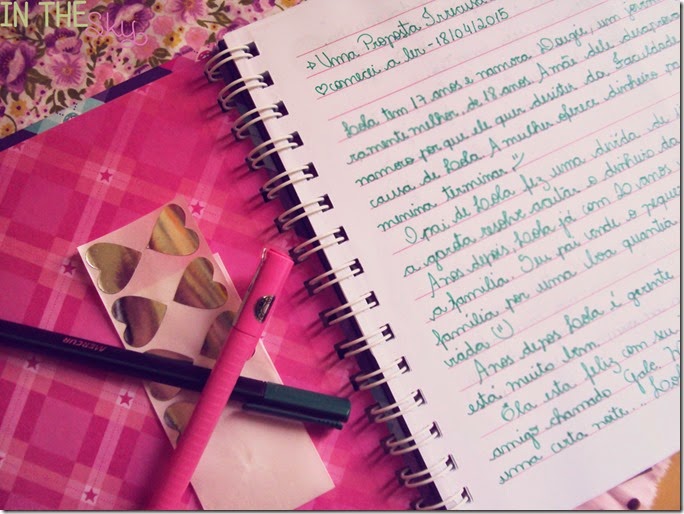 IN THE
Sky
→ Uma Proposta
♡ comecei a ler - 18/04/2015
Lola tem 17 anos e namora Daugie, um
ramente melhor, de 18 anos. A mãe dele
namoro por que ele quer desistir da faculdade
causa de Lola. A mulher oferece dinheiro
menina terminar
O pai de Lola fez uma dívida de
a garota resolve aceitar o dinheiro da
Anos depois Lola já com 20 anos
a família. Seu pai vende o
família por uma boa quantia
virada
Anos depois Lola é gerente
está muito bem.
Ela esta feliz com seu
amigo chamado Gale.
uma certa noite...
MERCUR